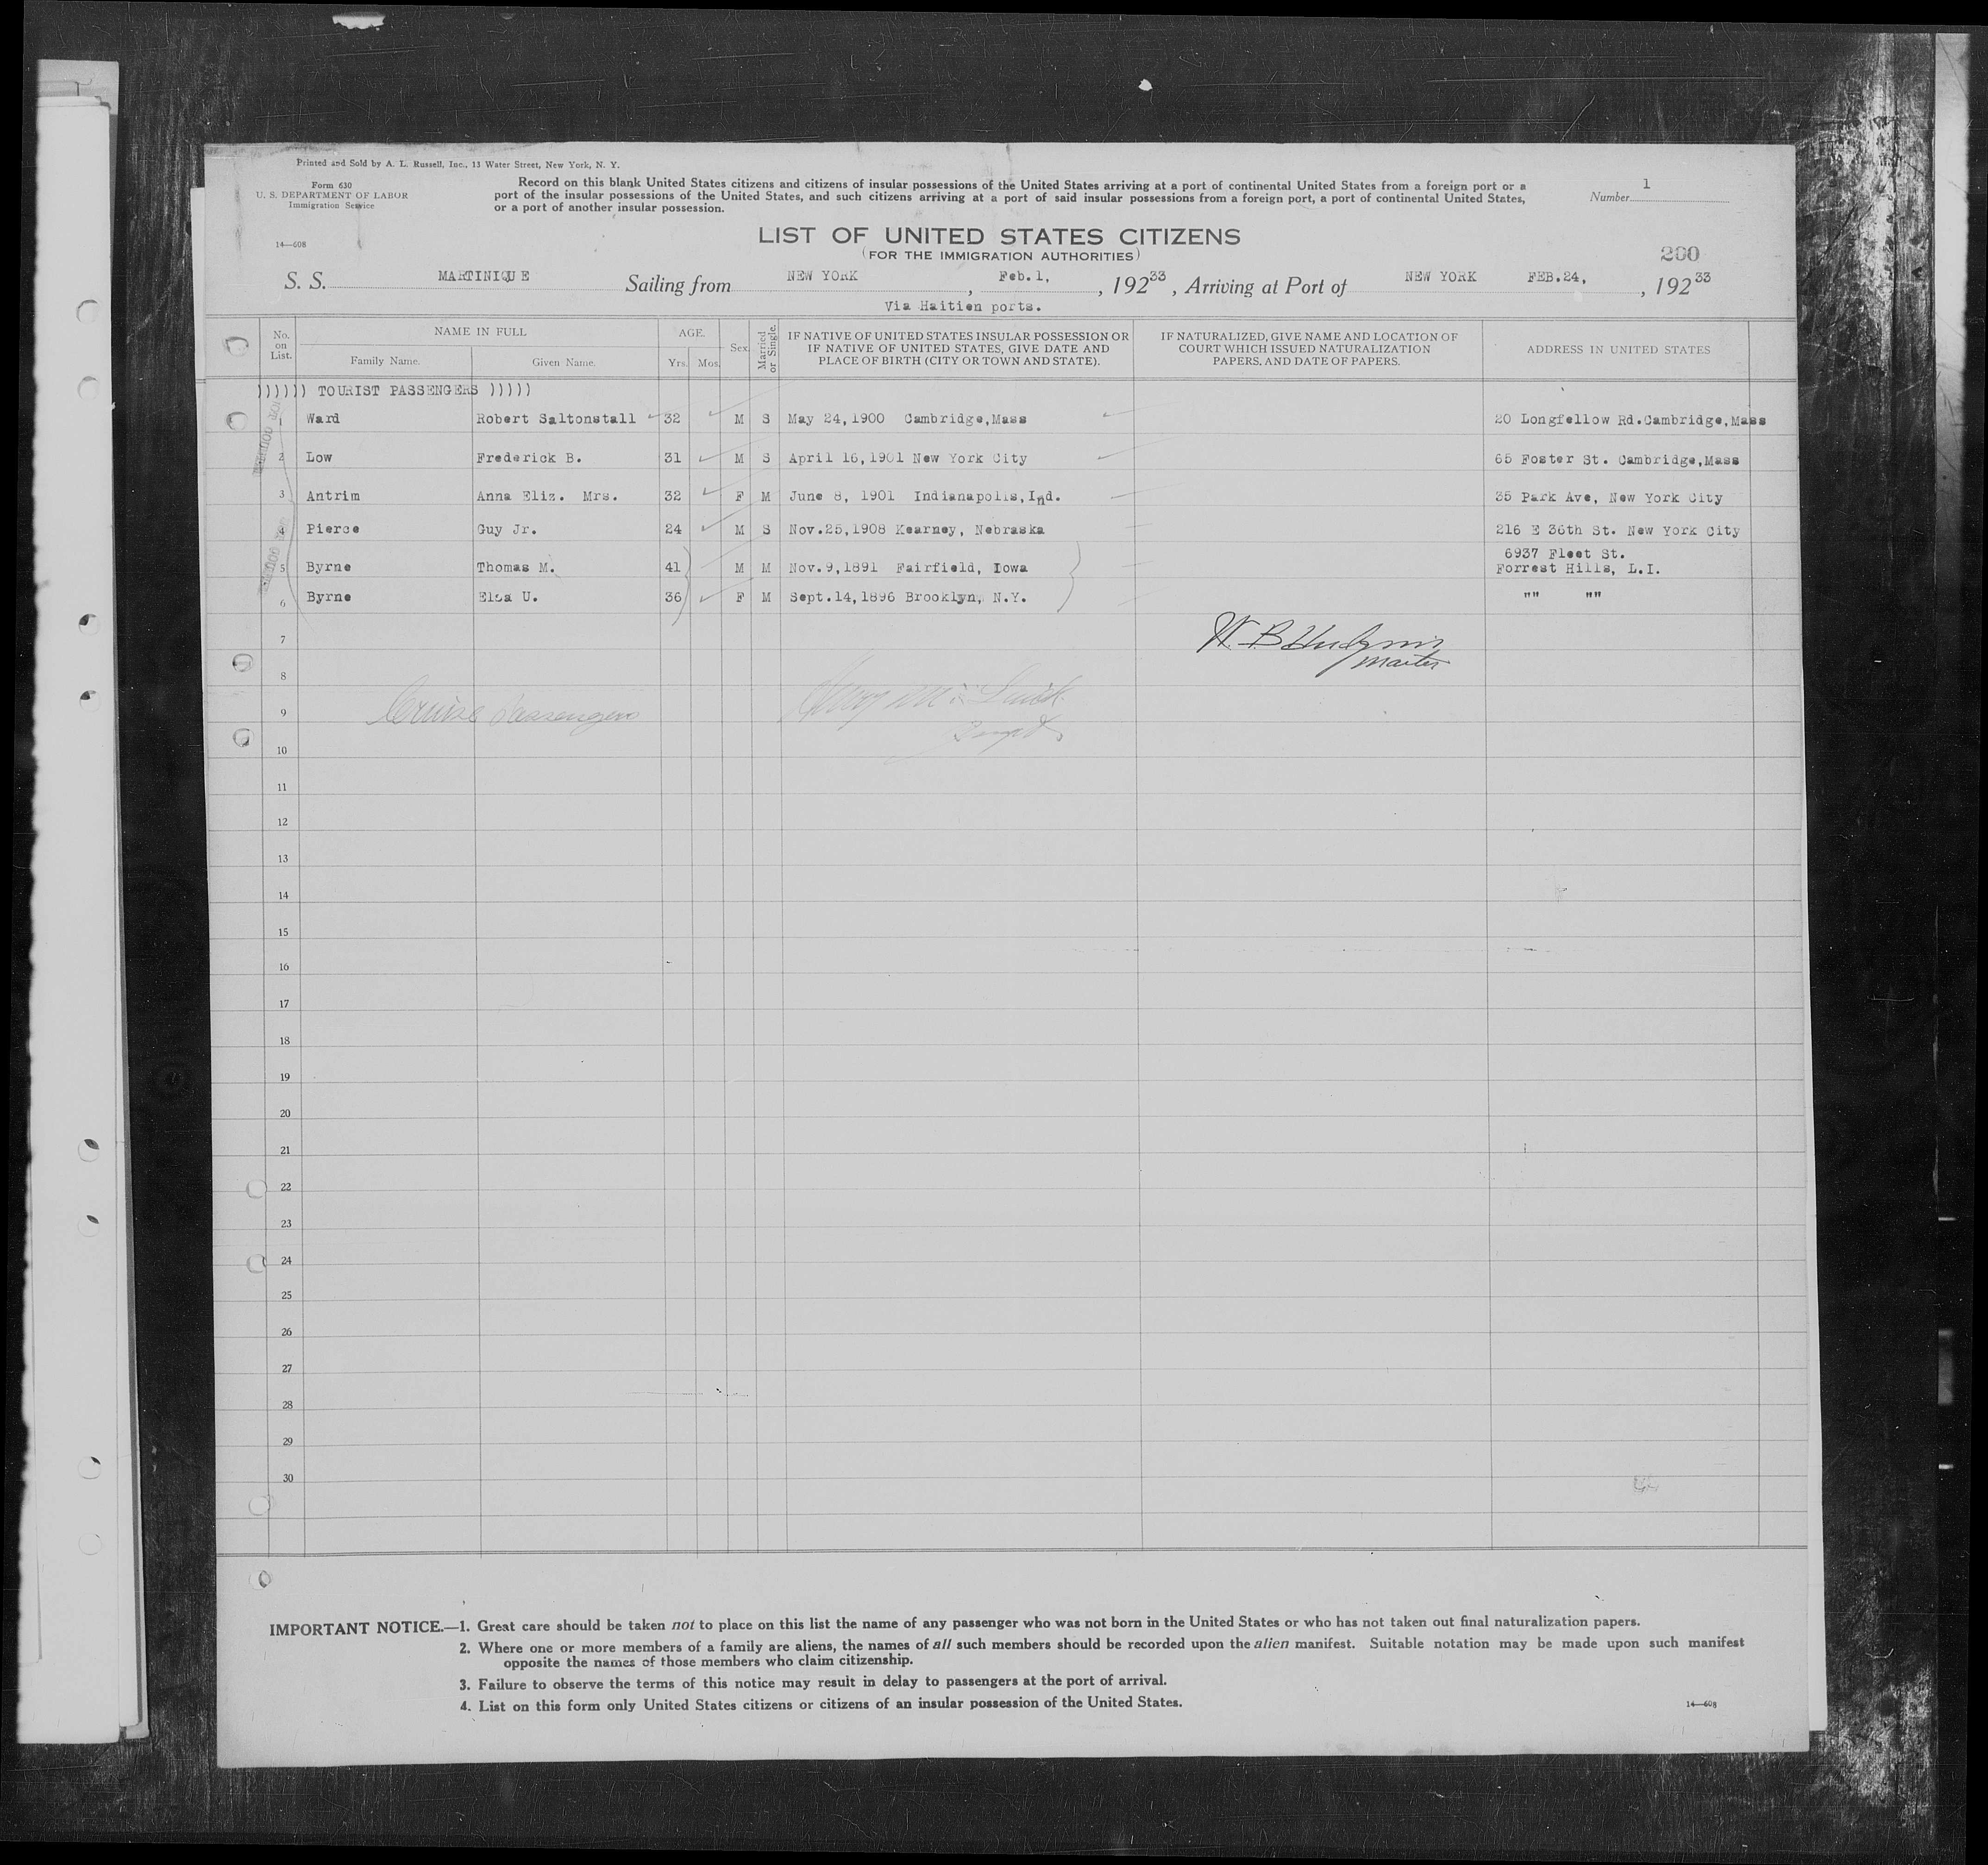 Printed and Sold by A. L. Russell, Inc., 13 Water Street, New York, N. Y.
Form 630
U. S. DEPARTMENT OF LABOR
Immigration Service
14—608
Record on this blank United States citizens and citizens of insular possessions of the United States arriving at a port of continental United States from a foreign port or a
port of the insular possessions of the United States, and such citizens arriving at a port of said insular possessions from a foreign port, a port of continental United States,
or a port of another insular possession.
Number 1
LIST OF UNITED STATES CITIZENS
(FOR THE IMMIGRATION AUTHORITIES)
260
S. S. MARTINIQUE Sailing from NEW YORK, Feb.1, , 19233, Arriving at Port of NEW YORK FEB.24, , 19233
Via Haitien ports.
No. on List. NAME IN FULL Family Name. Given Name. AGE. Yrs. Mos. Sex. Married or Single. IF NATIVE OF UNITED STATES INSULAR POSSESSION OR IF NATIVE OF UNITED STATES, GIVE DATE AND PLACE OF BIRTH (CITY OR TOWN AND STATE). IF NATURALIZED, GIVE NAME AND LOCATION OF COURT WHICH ISSUED NATURALIZATION PAPERS, AND DATE OF PAPERS. ADDRESS IN UNITED STATES
)))))) TOURIST PASSENGERS )))))
1 Ward Robert Saltonstall 32 M S May 24,1900 Cambridge,Mass 20 Longfellow Rd.Cambridge,Mass
2 Low Frederick B. 31 M S April 16,1901 New York City 65 Foster St. Cambridge,Mass
3 Antrim Anna Eliz. Mrs. 32 F M June 8, 1901 Indianapolis,Ind. 35 Park Ave, New York City
4 Pierce Guy Jr. 24 M S Nov.25,1908 Kearney, Nebraska 216 E 36th St. New York City
6937 Fleet St.
5 Byrne Thomas M. 41 M M Nov.9,1891 Fairfield, Iowa Forrest Hills, L.I.
6 Byrne Elsa U. 36 F M Sept.14,1896 Brooklyn, N.Y. "" ""
7 W. B. Hudgins
Master
8
9 Cruise Passengers
10
11
12
13
14
15
16
17
18
19
20
21
22
23
24
25
26
27
28
29
30
IMPORTANT NOTICE.—1. Great care should be taken not to place on this list the name of any passenger who was not born in the United States or who has not taken out final naturalization papers.
2. Where one or more members of a family are aliens, the names of all such members should be recorded upon the alien manifest. Suitable notation may be made upon such manifest
opposite the names of those members who claim citizenship.
3. Failure to observe the terms of this notice may result in delay to passengers at the port of arrival.
4. List on this form only United States citizens or citizens of an insular possession of the United States.
14—608